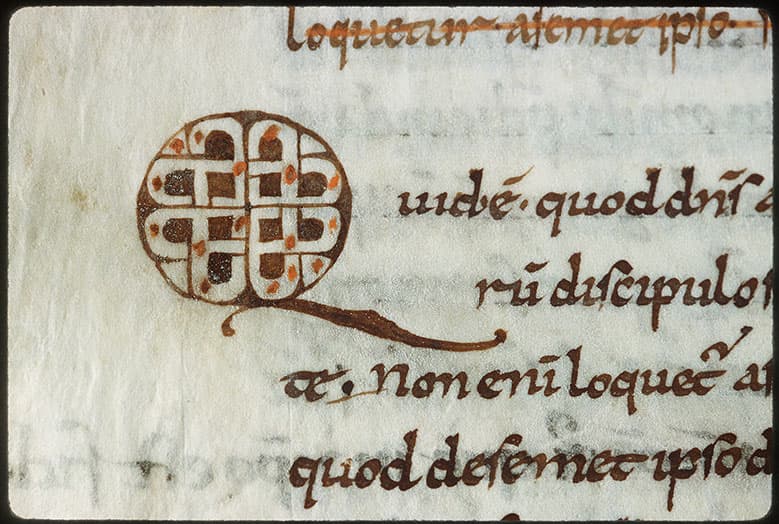 loquetur asemet ipso.
Q uid ē. quod dn̄s
rū discipulos
te. Non enī loquet᷑ a
quod desemet ipso d